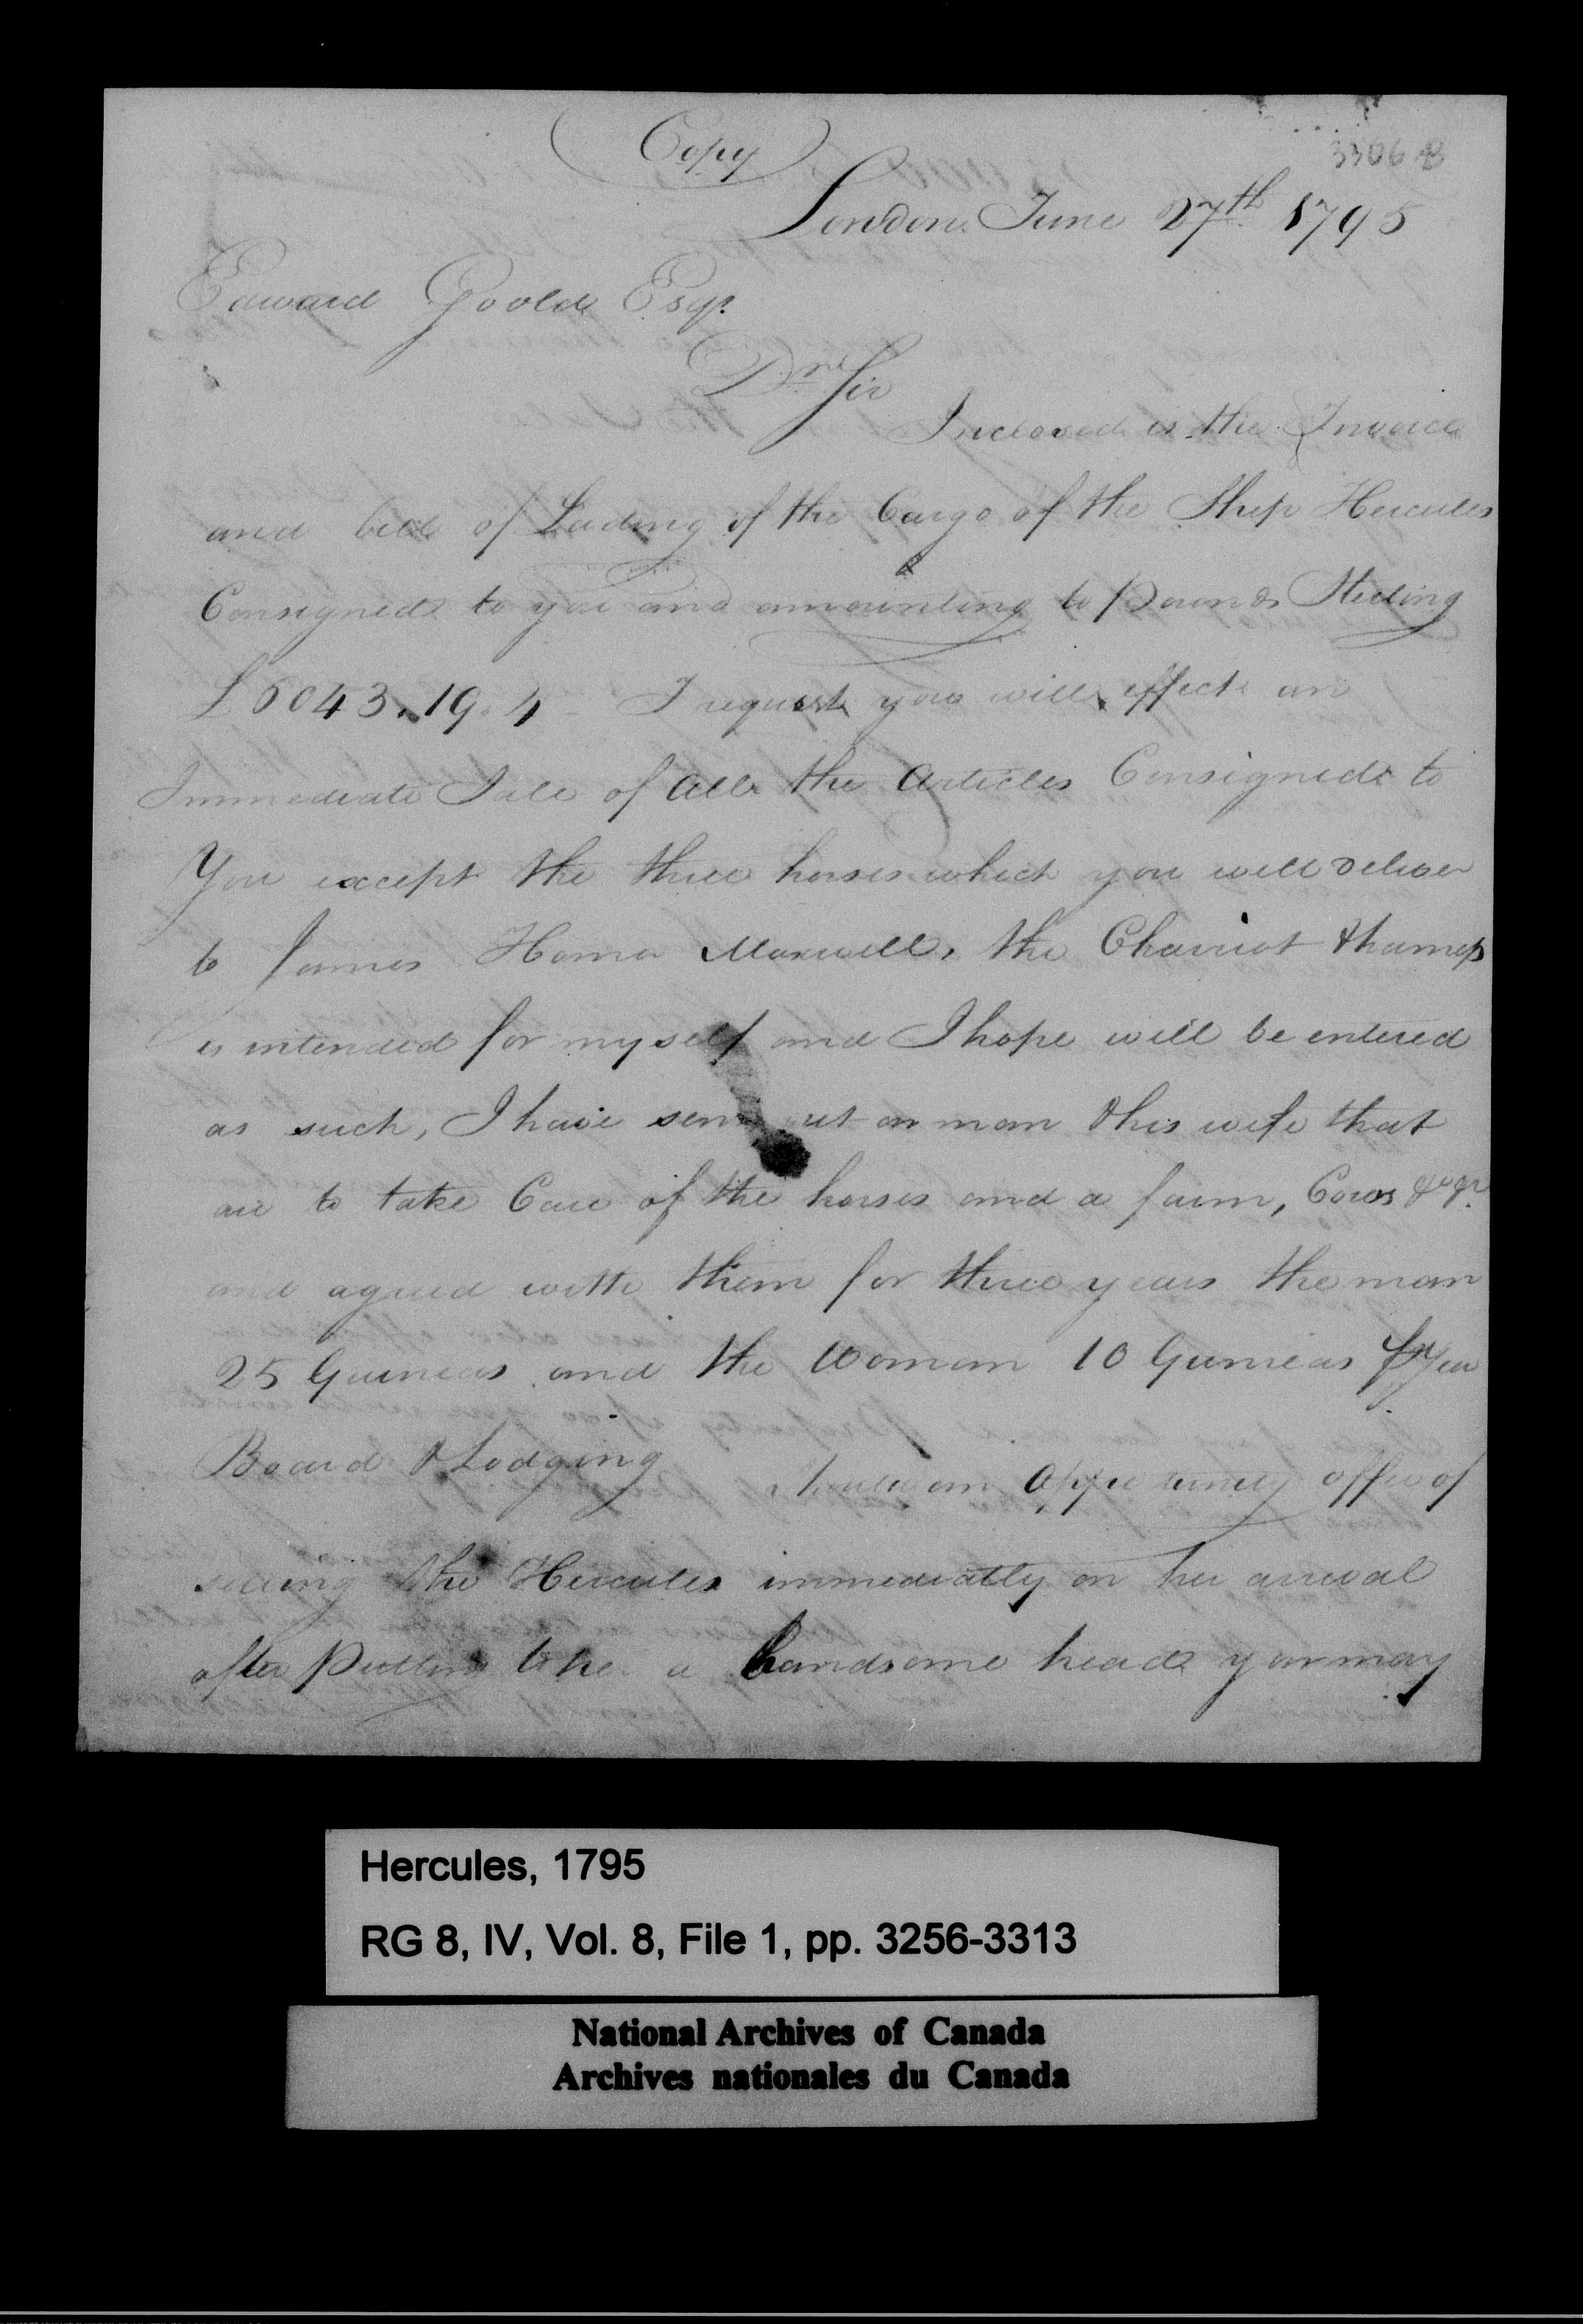 Copy
3306 B
London June 27th 1795
Edward Goold Esqr.
Dr Sir
Inclosed is the Invoice
and bill of Lading of the Cargo of the Ship Hercules
Consigned to you and amounting to Pounds Sterling
£6043.19.4 I request you will effect an
Immediate Sale of all the Articles Consigned to
You except the three horses which you will deliver
to James Homer Maxwell, the Charriot & harness
is intended for myself and I hope will be entered
as such, I have sent out an man & his wife that
are to take Care of the horses and a farm, Cows
and agreed with them for three years the man
25 Guineas and the Woman 10 Guineas Year
Board & Lodging an offer of
selling the Hercules immediatly on her arrival
after Putting to her a handsome head you may
Hercules, 1795
RG 8, IV, Vol. 8, File 1, pp. 3256-3313
National Archives of Canada
Archives nationales du Canada